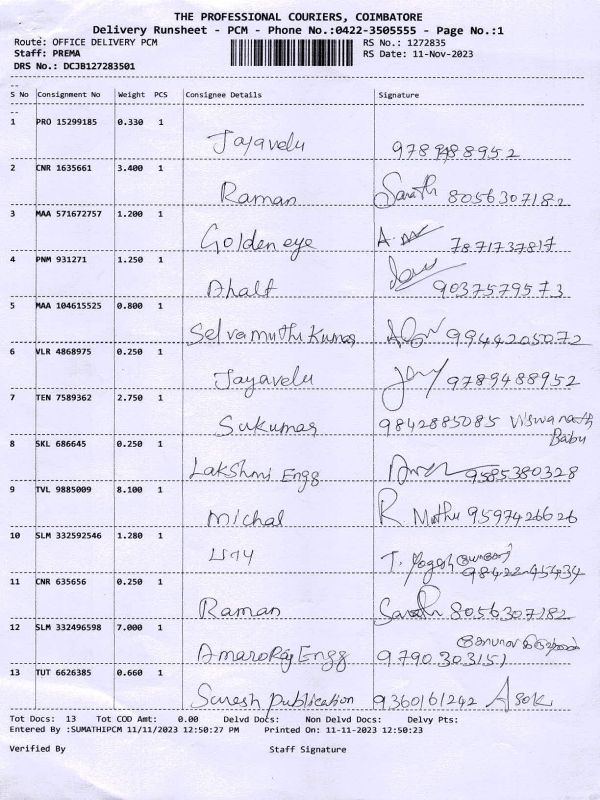 THE PROFESSIONAL COURIERS, COIMBATORE
Delivery Runsheet - PCM - Phone No.:0422-3505555 - Page No.:1
Route: OFFICE DELIVERY PCM RS No.: 1272835
Staff: PREMA RS Date: 11-Nov-2023
DRS No.: DCJB127283501
S No Consignment No Weight PCS Consignee Details Signature
1 PRO 15299185 0.330 1
Jayavelu 9789488952
2 CNR 1635661 3.400 1
Raman Sarath 8056307182
3 MAA 571672757 1.200 1
Golden eye 7871737817
4 PNM 931271 1.250 1
Dhalf 9037579573
5 MAA 104615525 0.800 1
Selvamuthu Kumar 9944205072
6 VLR 4868975 0.250 1
Jayavelu Jey 9789488952
7 TEN 7589362 2.750 1
Sukumar 9842885085 Viswanath
Babu
8 SKL 686645 0.250 1
Lakshmi Engg 9585380328
9 TVL 9885009 8.100 1
Michal R Muthu 9597426626
10 SLM 332592546 1.280 1
T. Yogesh
98422-45434
11 CNR 635656 0.250 1
Raman Sarath 8056307182
12 SLM 332496598 7.000 1
Amaroraj Engg 9790303151
13 TUT 6626385 0.660 1
Suresh Publication 9360161242 Asok
Tot Docs: 13 Tot COD Amt: 0.00 Delvd Docs: Non Delvd Docs: Delvy Pts:
Entered By :SUMATHIPCM 11/11/2023 12:50:27 PM Printed On: 11-11-2023 12:50:23
Verified By Staff Signature